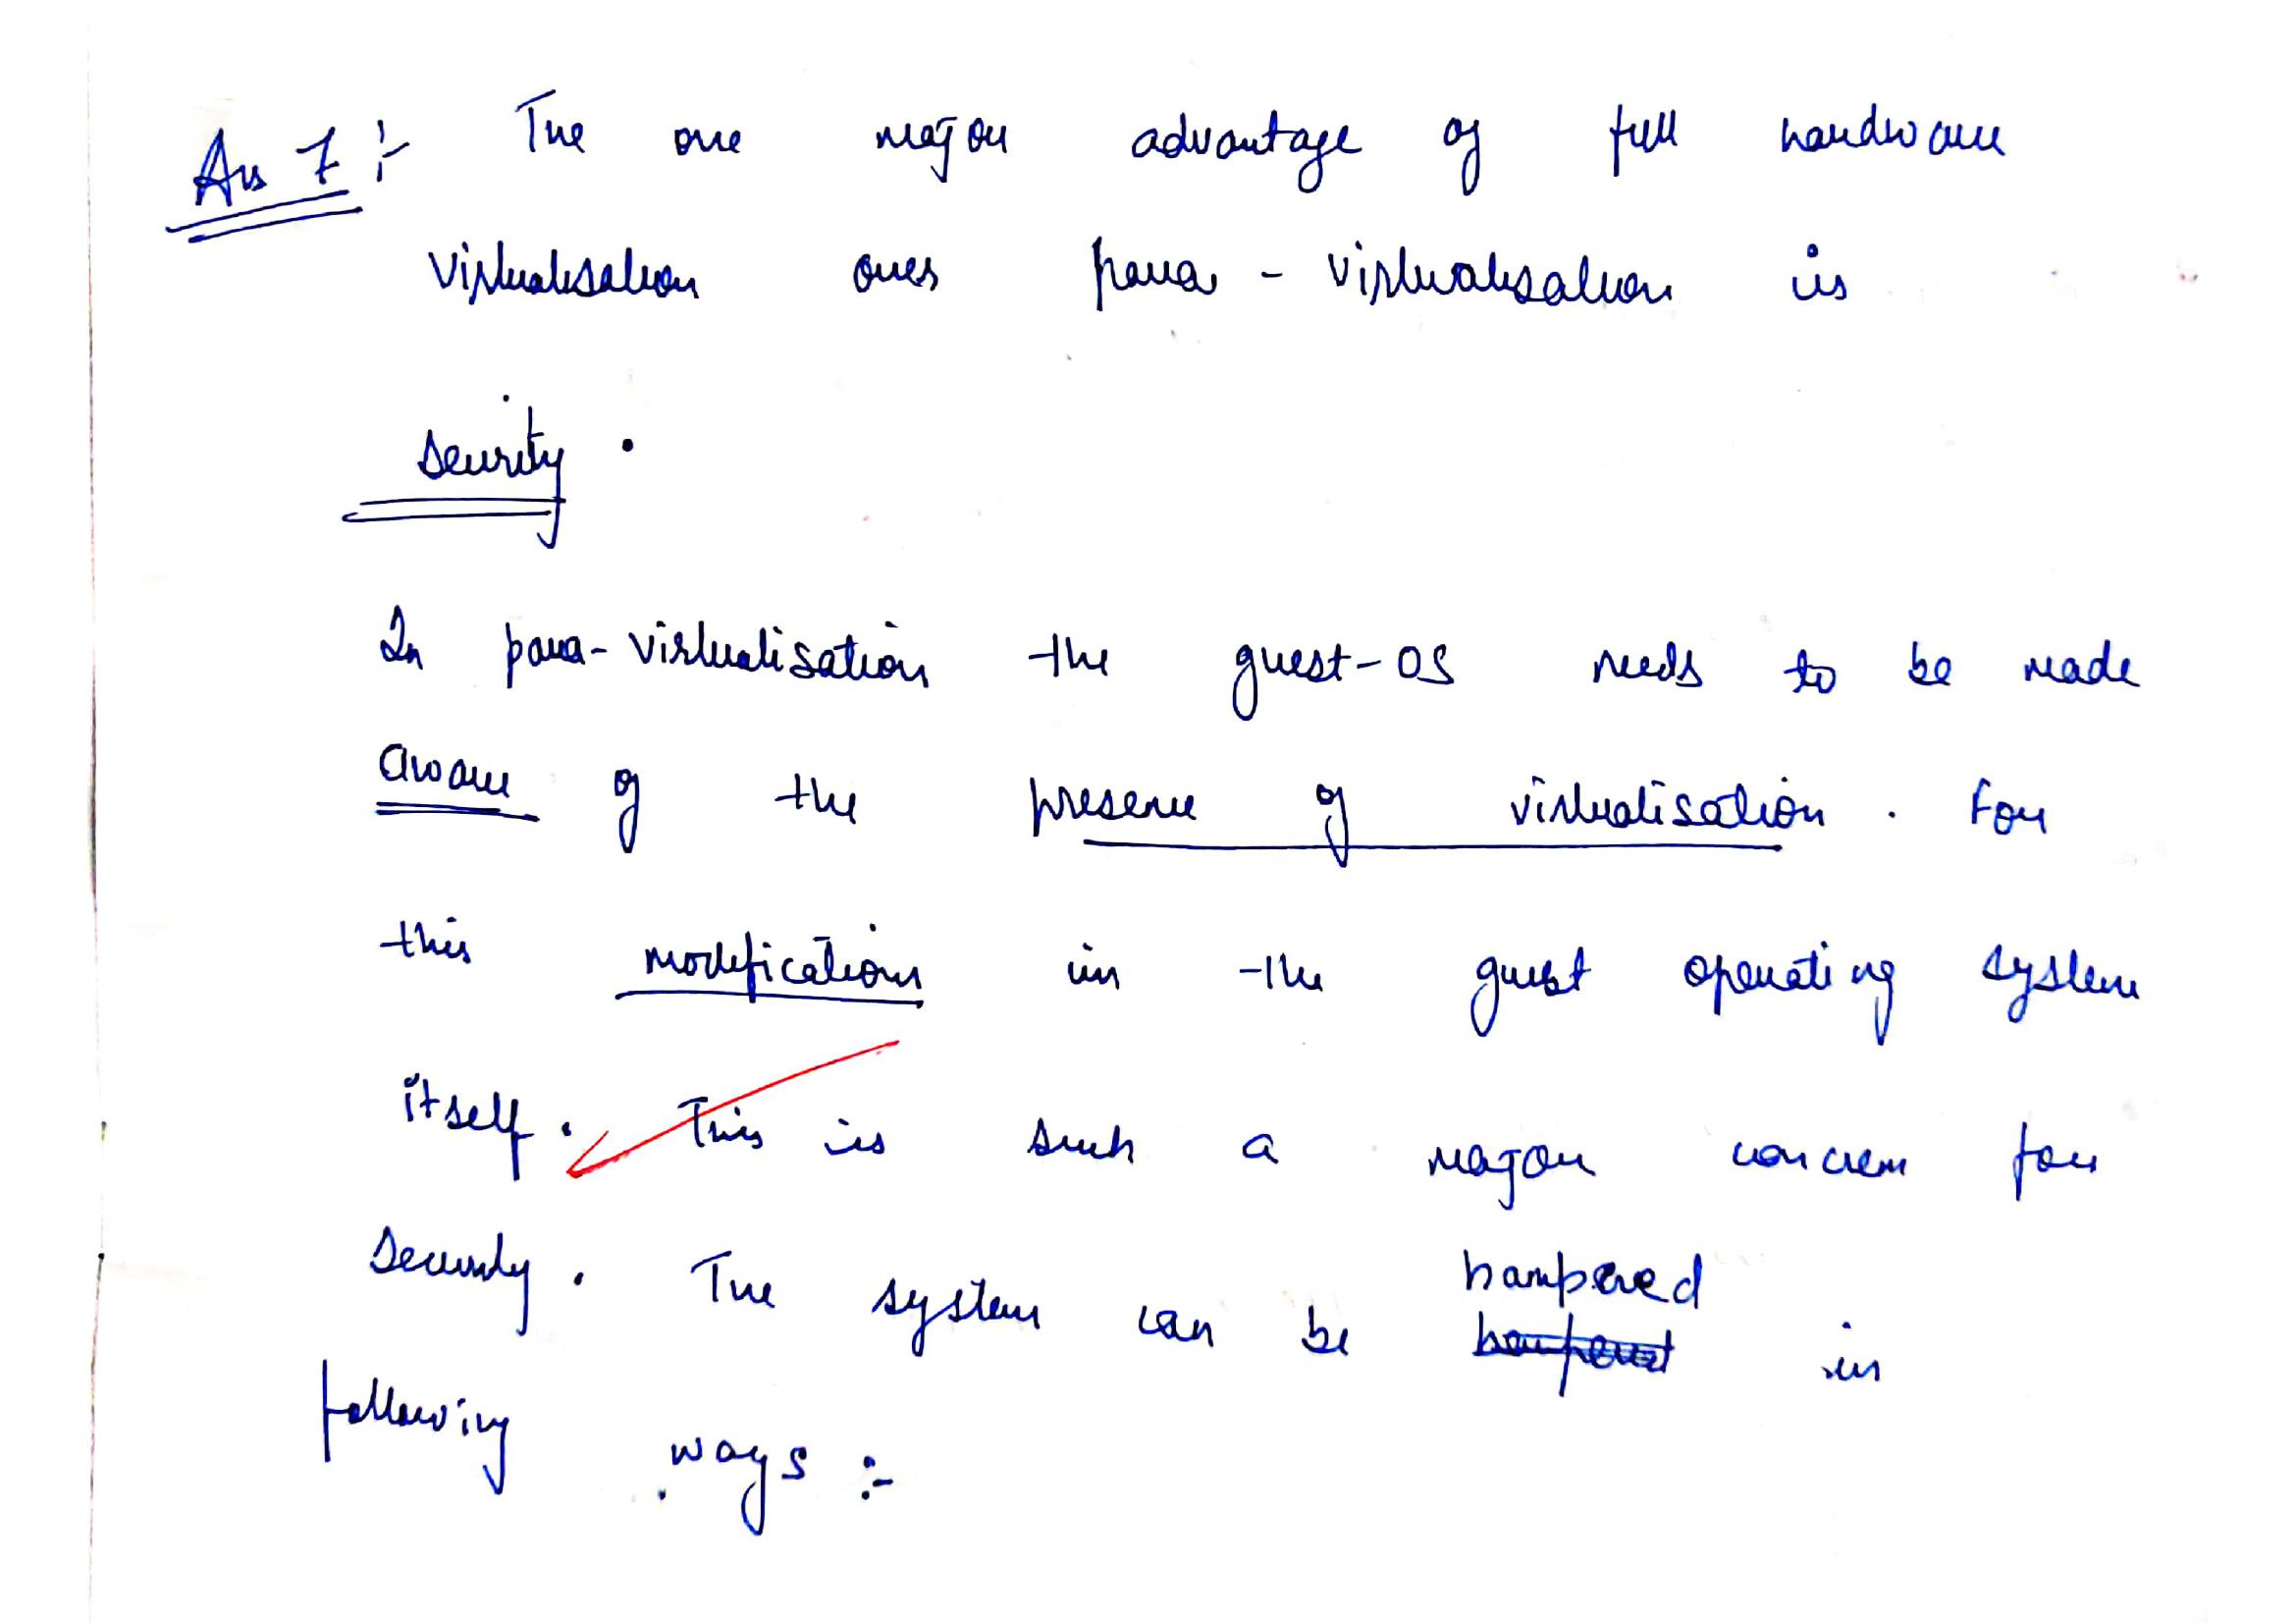 Ans 7 :-  The one major advantage of full hardware
virtualisation over para - virtualisation is
security .
In para-virtualisation the guest-OS needs to be made
aware of the presence of virtualisation . For
this modification in the guest operating system
itself . This is such a major concern for
security . The system can be hampered in
following ways :-